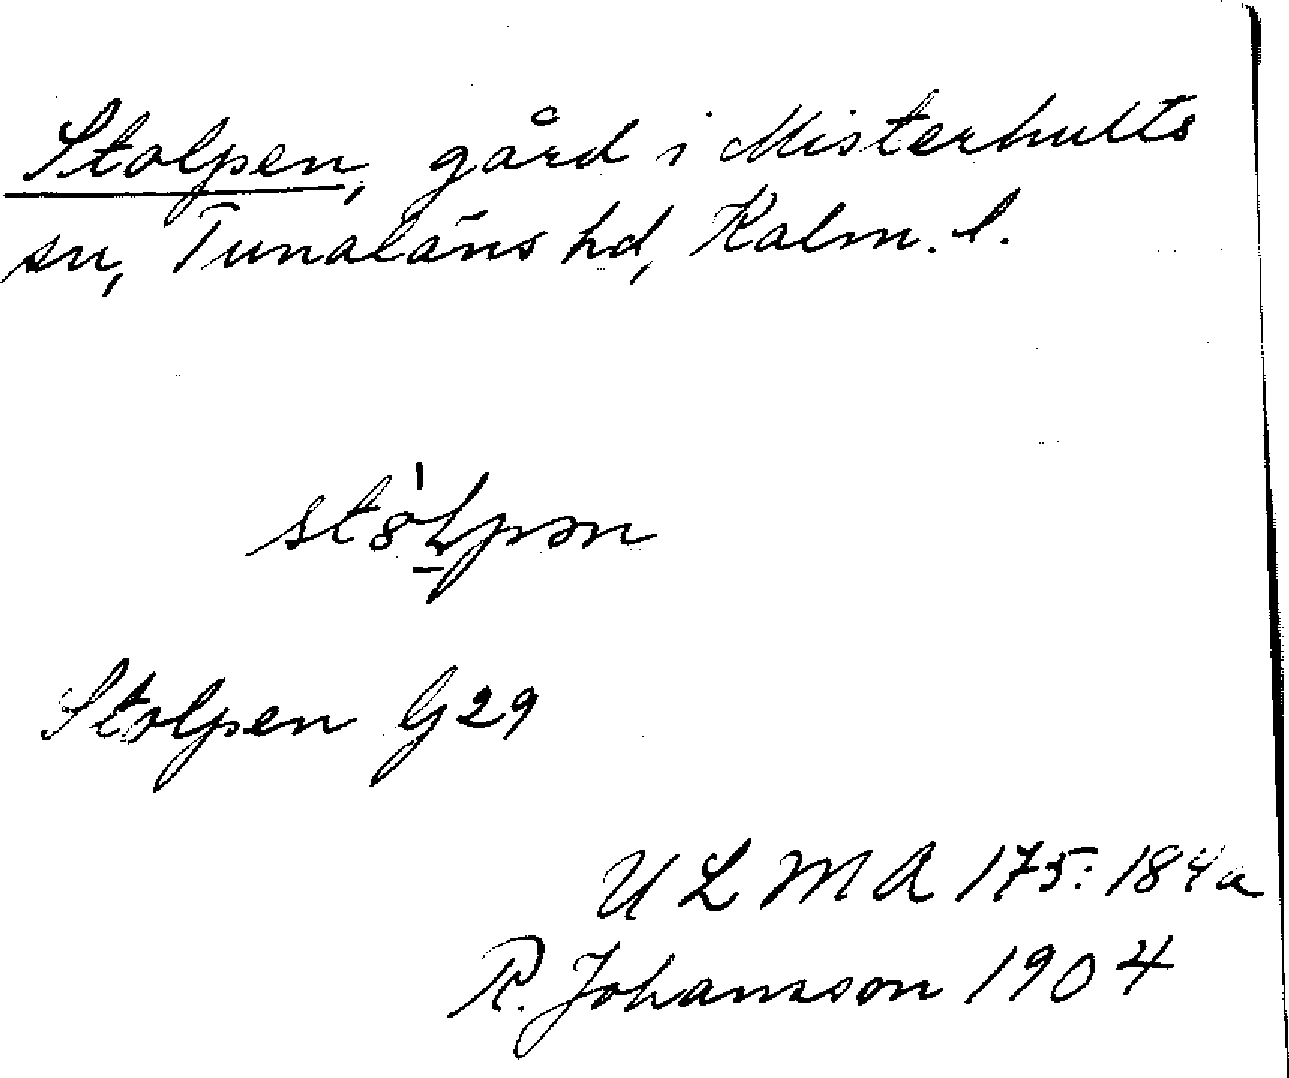 Stolpen, gård i Misterhults
sn, Tunaläns hd, Kalm. l.
Stolpen G 29
U L M A 175:184a
R. Johansson 1904